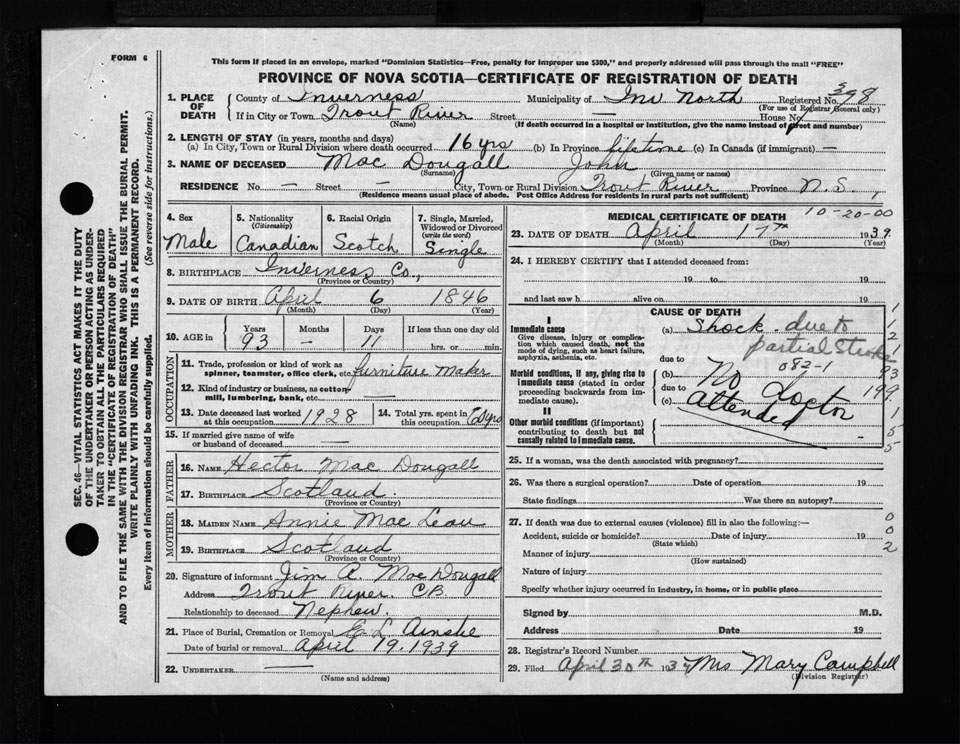 FORM 6
This form if placed in an envelope, marked "Dominion Statistics—Free, penalty for improper use $300," and properly addressed will pass through the mail "FREE"
PROVINCE OF NOVA SCOTIA—CERTIFICATE OF REGISTRATION OF DEATH
1. PLACE OF DEATH County of Inverness Municipality of Inv North Registered No. 398
(For use of Registrar General only)
If in City or Town Trout River Street — House No.
(Name) (If death occurred in a hospital or institution, give the name instead of street and number)
2. LENGTH OF STAY (in years, months and days)
(a) In City, Town or Rural Division where death occurred 16 yrs (b) In Province lifetime (c) In Canada (if immigrant) —
3. NAME OF DECEASED Mac Dougall John
(Surname) (Given name or names)
RESIDENCE No. — Street — City, Town or Rural Division Trout River Province N.S.
(Residence means usual place of abode. Post Office Address for residents in rural parts not sufficient)
4. Sex Male
5. Nationality (Citizenship) Canadian
6. Racial Origin Scotch
7. Single, Married, Widowed or Divorced (write the word) Single
8. BIRTHPLACE Inverness Co.,
(Province or Country)
9. DATE OF BIRTH April 6 1846
(Month) (Day) (Year)
10. AGE in Years Months Days If less than one day old
93 — 11 hrs. or min.
OCCUPATION
11. Trade, profession or kind of work as spinner, teamster, office clerk, etc. furniture maker
12. Kind of industry or business, as cotton-mill, lumbering, bank, etc. —
13. Date deceased last worked at this occupation 1928
14. Total yrs. spent in this occupation
15. If married give name of wife or husband of deceased
FATHER
16. NAME Hector Mac Dougall
17. BIRTHPLACE Scotland.
(Province or Country)
MOTHER
18. MAIDEN NAME Annie Mac Lean
19. BIRTHPLACE Scotland
(Province or Country)
20. Signature of informant Jim A. Mac Dougall
Address Trout River. C.B.
Relationship to deceased Nephew.
21. Place of Burial, Cremation or Removal E. L. Ainslie
Date of burial or removal April 19. 1939
22. UNDERTAKER —
(Name and address)
MEDICAL CERTIFICATE OF DEATH 10-20-00
23. DATE OF DEATH April 17th 1939.
(Month) (Day) (Year)
24. I HEREBY CERTIFY that I attended deceased from:
19 to 19
and last saw h alive on 19
CAUSE OF DEATH
I
Immediate cause
Give disease, injury or complication which caused death, not the mode of dying, such as heart failure, asphyxia, asthenia, etc.
(a) Shock. due to
partial stroke
due to 082-1
Morbid conditions, if any, giving rise to immediate cause (stated in order proceeding backwards from immediate cause).
(b) No Doctor
due to
(c) attended
II
Other morbid conditions (if important) contributing to death but not causally related to immediate cause.
1
1
2
1
93
199
1
5
5
25. If a woman, was the death associated with pregnancy?
26. Was there a surgical operation? Date of operation 19
State findings Was there an autopsy?
27. If death was due to external causes (violence) fill in also the following:—
Accident, suicide or homicide? Date of injury 19
(State which)
Manner of injury
(How sustained)
Nature of injury
Specify whether injury occurred in industry, in home, or in public place
0
0
2
Signed by M.D.
Address Date 19
28. Registrar's Record Number
29. Filed April 30th 1939 Mrs Mary Campbell
(Division Registrar)
SEC. 46—VITAL STATISTICS ACT MAKES IT THE DUTY
OF THE UNDERTAKER OR PERSON ACTING AS UNDER-
TAKER TO OBTAIN ALL THE PARTICULARS REQUIRED
IN THE "CERTIFICATE OF REGISTRATION OF DEATH"
AND TO FILE THE SAME WITH THE DIVISION REGISTRAR WHO SHALL ISSUE THE BURIAL PERMIT.
WRITE PLAINLY WITH UNFADING INK. THIS IS A PERMANENT RECORD.
Every item of information should be carefully supplied. (See reverse side for instructions.)